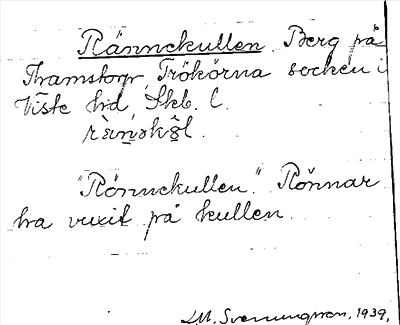 Rännekullen Berg på
Framstorp, Trökörna socken i
Viste hd, Skb. l.
"Rönnekullen." Rönnar
ha vuxit på kullen.
M. Svenungsson, 1939,